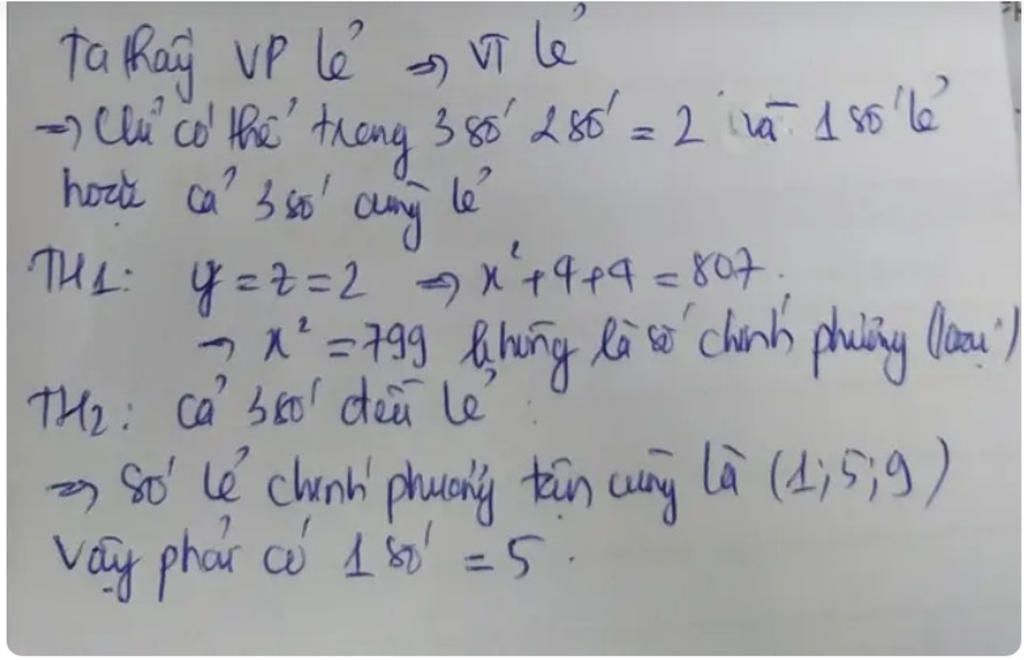 Ta thấy VP lẻ => VT lẻ
=> Chỉ có thể trong 3 số 2 số = 2 và 1 số lẻ
hoặc cả 3 số cùng lẻ
TH1: y = z = 2 => x² + 4 + 4 = 807.
→ x² = 799 không là số chính phương (loại)
TH2: Cả 3 số đều lẻ:
=> Số lẻ chính phương tận cùng là (1; 5; 9)
Vậy phải có 1 số = 5.